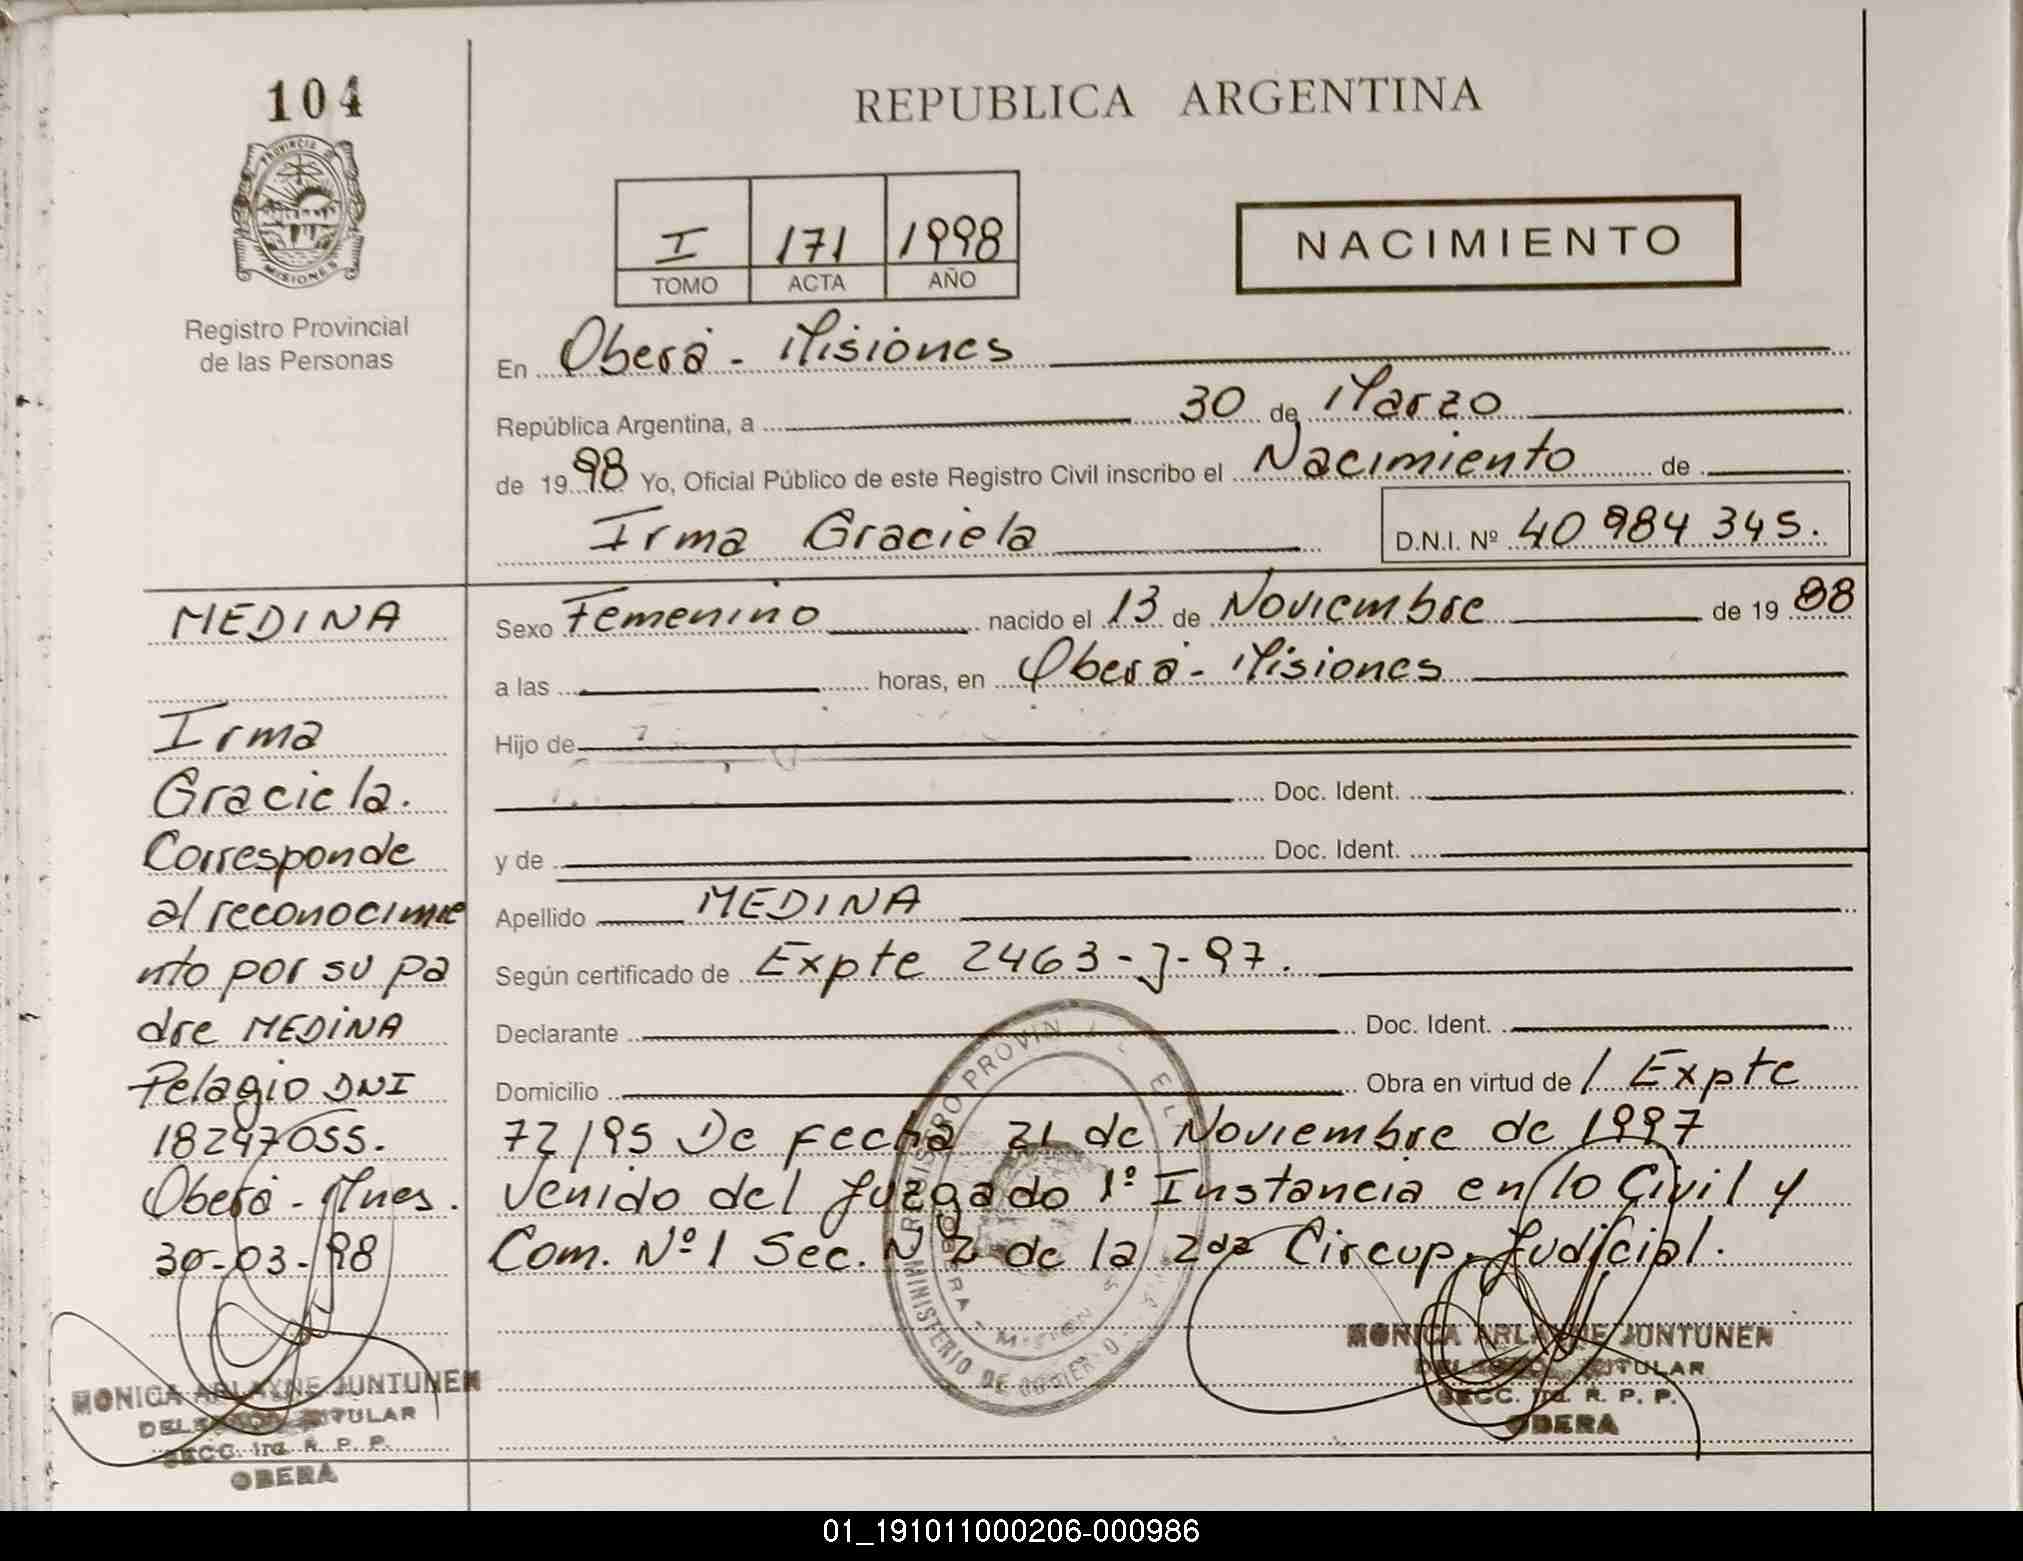 104
PROVINCIA DE
MISIONES
Registro Provincial
de las Personas
REPUBLICA ARGENTINA
I 171 1998
TOMO ACTA AÑO
NACIMIENTO
En Oberá - Misiones
República Argentina, a 30 de Marzo
de 1998 Yo, Oficial Público de este Registro Civil inscribo el Nacimiento de
Irma Graciela D.N.I. Nº 40 984 345.
MEDINA
Irma
Graciela.
Corresponde
al reconocimie
nto por su pa
dre MEDINA
Pelagio DNI
18247055.
Oberá - Mnes.
30-03-98
MONICA ARLAYNE JUNTUNEN
DELEGADA TITULAR
SECC. 1ra. R. P. P.
OBERA
Sexo Femenino nacido el 13 de Noviembre de 1988
a las horas, en Oberá - Misiones
Hijo de
Doc. Ident.
y de Doc. Ident.
Apellido MEDINA
Según certificado de Expte 2463-J-97.
Declarante Doc. Ident.
Domicilio Obra en virtud de / Expte
72/95 De fecha 21 de Noviembre de 1997
venido del Juzgado 1º Instancia en lo Civil y
Com. Nº 1 Sec. Nº 2 de la 2da Circup. Judicial.
REGISTRO PROVINCIAL DE L
MINISTERIO DE GOBIERNO
OBERA - MISIONES
MONICA ARLAYNE JUNTUNEN
DELEGADA TITULAR
SECC. 1ra. R. P. P.
OBERA
01_191011000206-000986